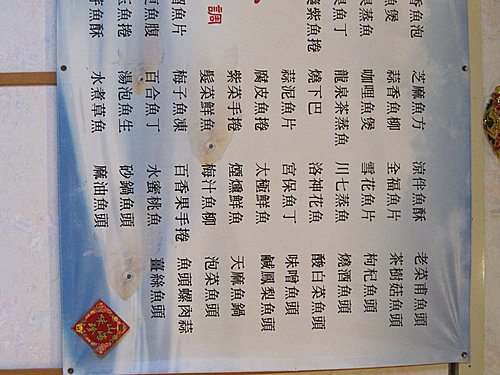 香魚泡
魚煲
蒸魚
魚丁
紫魚捲
調
魚片
魚腹
魚捲
魚酥
芝麻魚方
蒜香魚柳
咖哩魚煲
龍泉茶蒸魚
燒下巴
蒜泥魚片
腐皮魚捲
紫菜手捲
髮菜鮮魚
梅子魚凍
百合魚丁
湯泡魚生
水煮草魚
涼伴魚酥
全福魚片
雪花魚片
川七蒸魚
洛神花魚
宮保魚丁
太極鮮魚
煙燻鮮魚
梅汁魚柳
百香果手捲
水蜜桃魚
砂鍋魚頭
麻油魚頭
老菜甫魚頭
茶樹菇魚頭
枸杞魚頭
燒酒魚頭
酸白菜魚頭
味噌魚頭
鹹鳳梨魚頭
天麻魚鍋
泡菜魚頭
魚頭螺肉蒜
薑絲魚頭